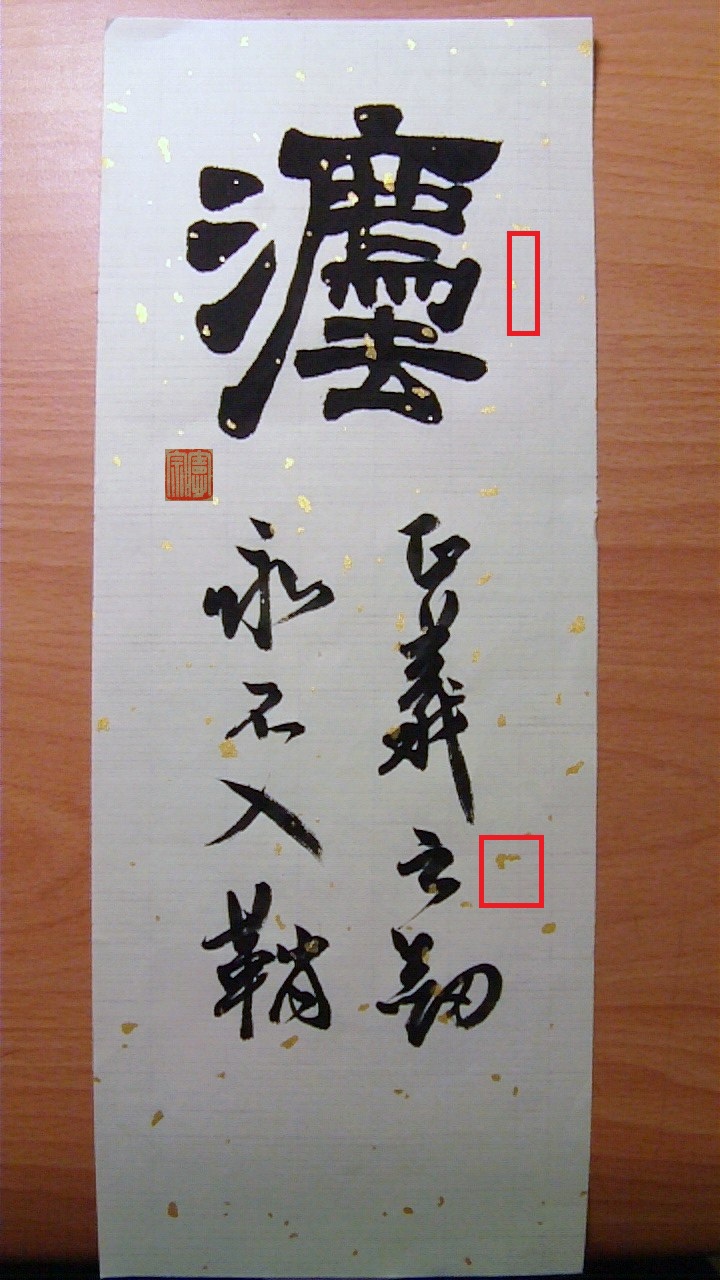 灋
正義之劍
永不入鞘